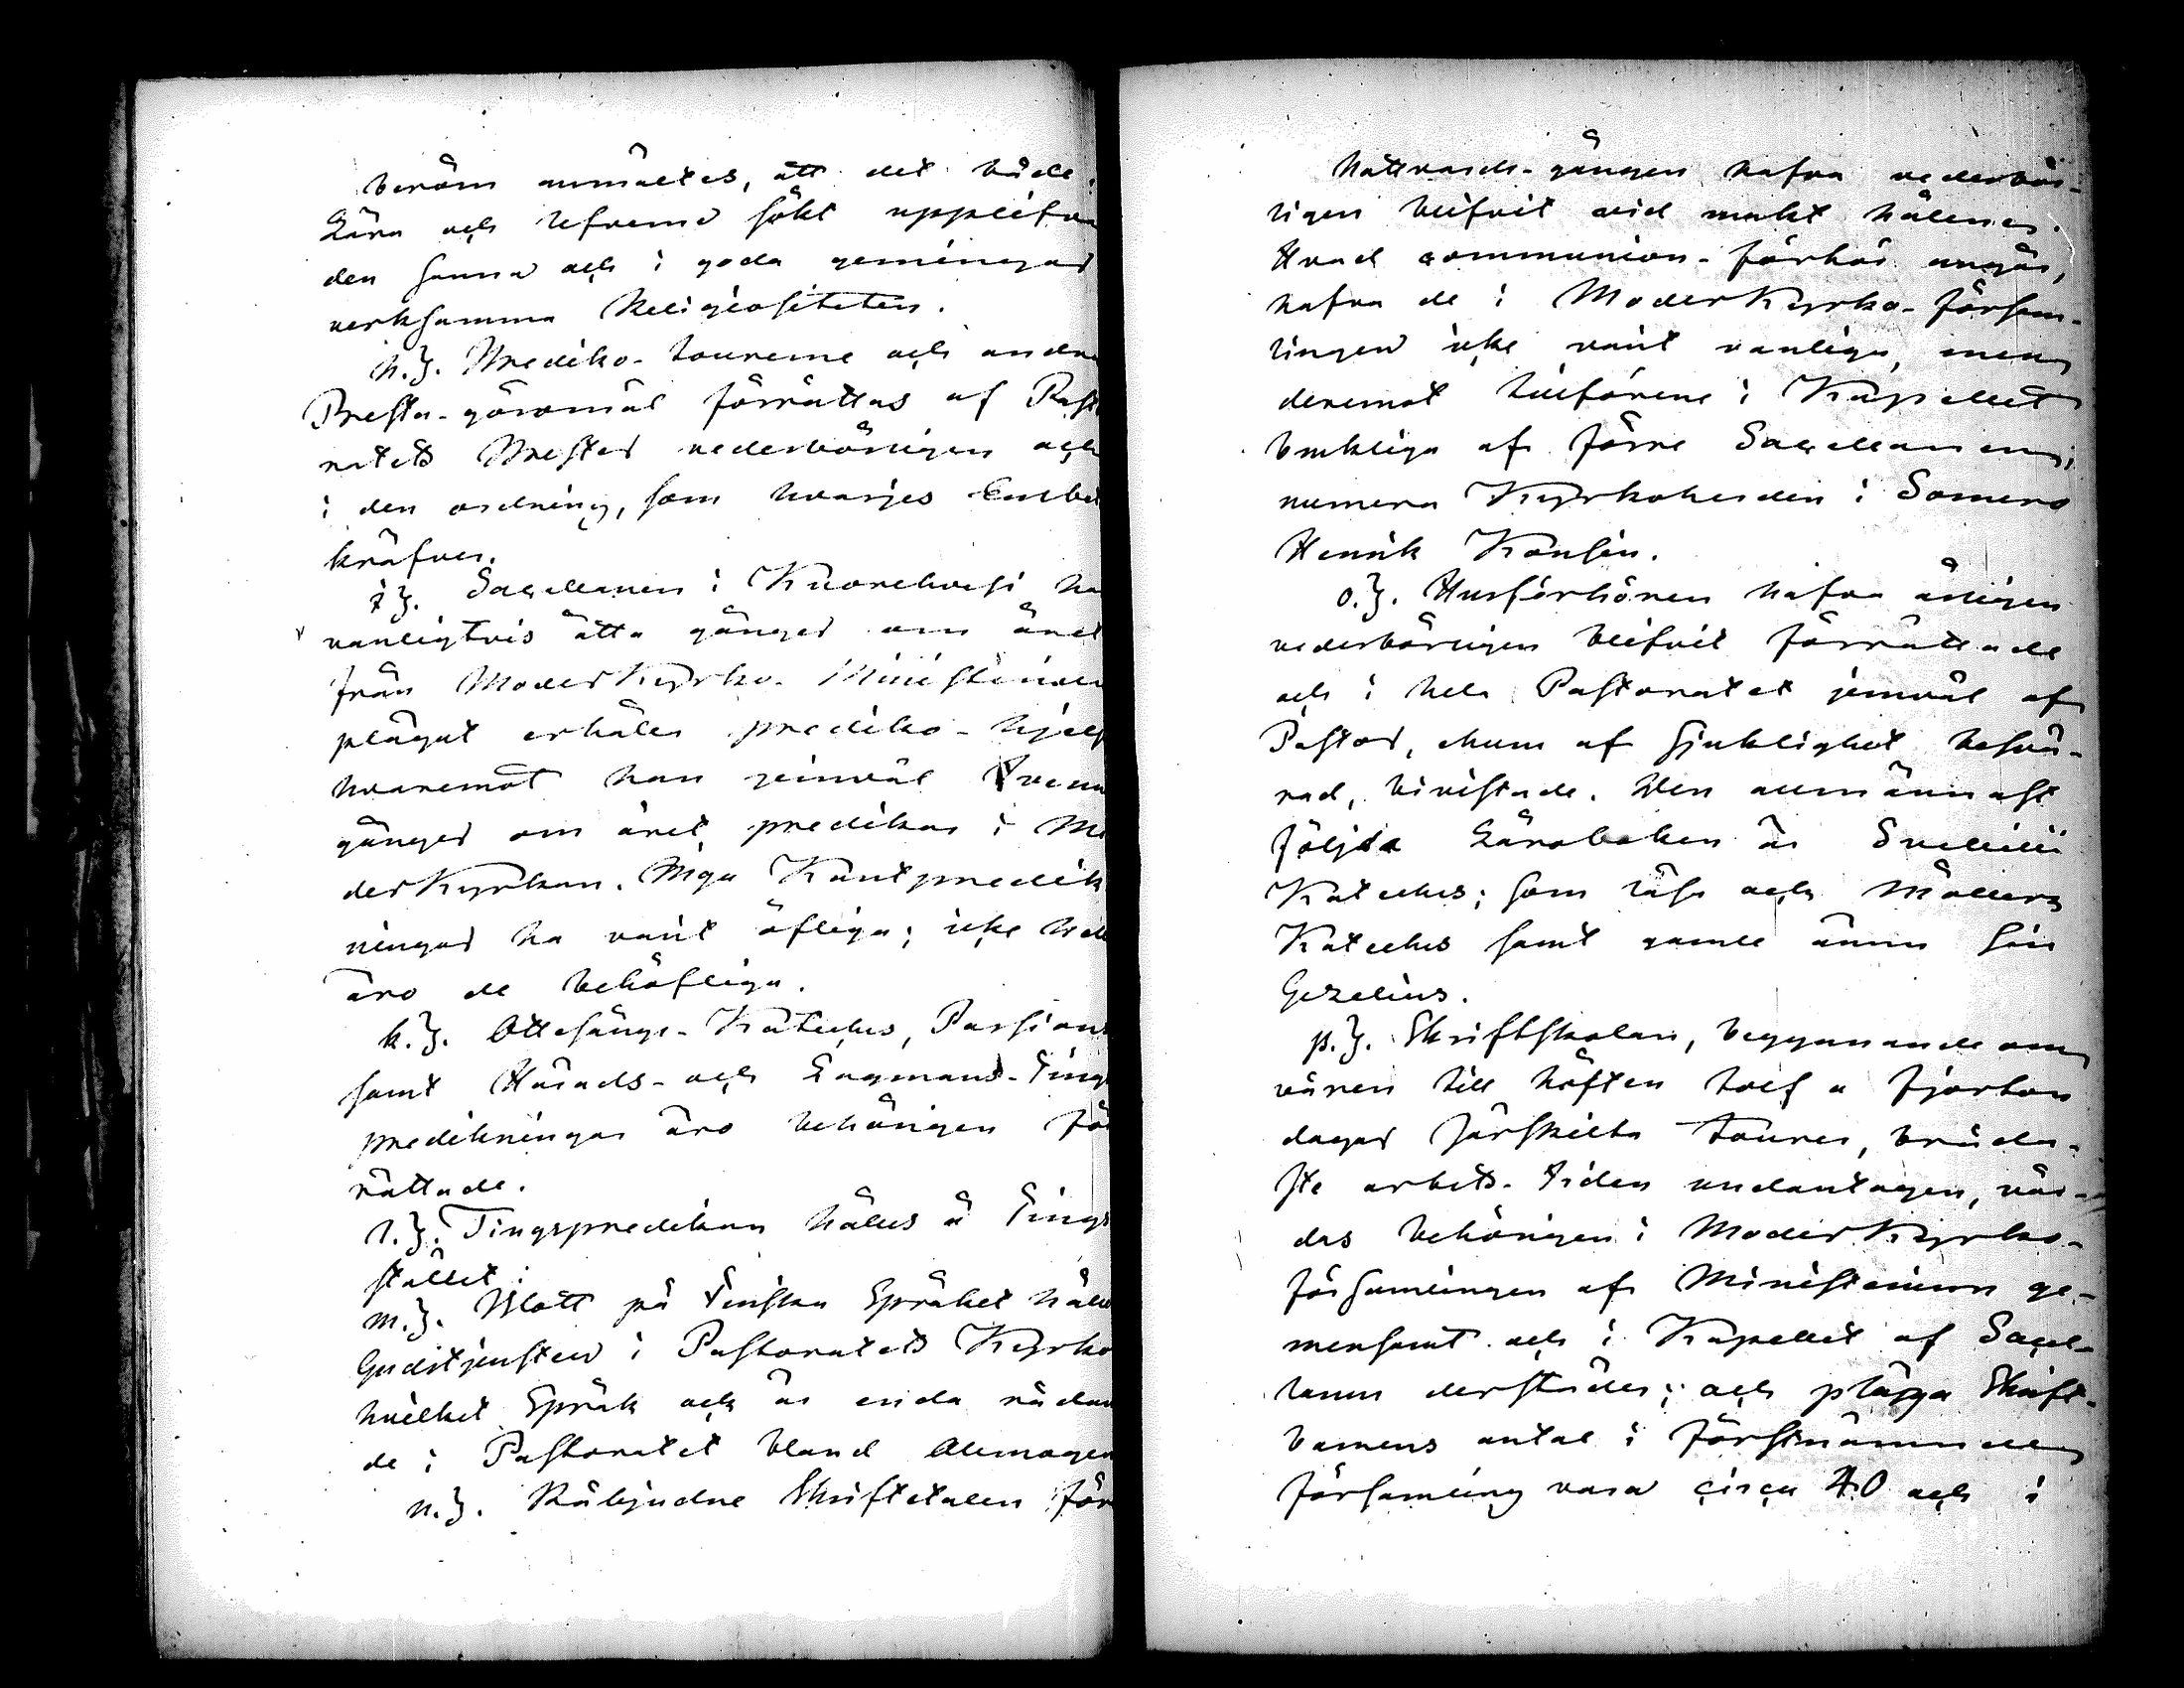 beröm anmältes, att det både i
Lära och lefverne sökt upplifva
den sanna och i goda gerningar
verksamma Religiositeten.
h.). Prediko-tourerne och andra
Presta-göromål förrättas af Past
ratets Prester vederbörligen och
i den ordning, som hvarjes Embet
kräfver.
i). Sacellanen i Kuorehvesi ha
vanligtvis åtta gånger om året
från ModerKyrko-Ministerium
plägat erhålla prediko-hjelp
hvaremot han jemväl tvenne
gånger om året predikar i Mo
derKyrkan. Inga Kantpredik
ningar ha varit öfliga; icke hell
äro de behöfliga.
k.). Ottesångs-Kateches, Passions
samt Härads- och Lagmans-Tings
predikningar äro behörigen för
rättade.
l.). Tingspredikan hålles å Tings
stället.
m.). Blott på Finska Språket hålles
Gudstjensten i Pastoratets Kyrko
hvilket Språk och är enda rådan
de i Pastoratet bland Allmogen
n.). Påbjudne Skriftetalen för
Nattvards-gången hafva vederbör-
ligen blifvit vid makt hållna.
Hvad communion-förhör angår,
hafva de i ModerKyrko-försam-
lingen icke varit vanliga, men
deremot tillförene i Kapellet
brukliga af förre Sacellanen,
numera Kyrkoherden i Somero
Henrik Konsin.
o.). Husförhören hafva årligen
vederbörligen blifvit förrättade
och i hela Pastoratet jemväl af
Pastor, ehuru af sjuklighet besvä-
rad, bivistade. Den allmännast
följda Läroboken är Svebilii
Kateches; som läses och Möllers
Kateches samt gamle ännu sin
Gezelius.
p.). Skriftskolan, begynnande om
våren till hösten tolf a fjorton
dagar särskilta tourer, bråda-
ste arbets-tiden undantagen, vår-
das behörigen i ModerKyrko-
församlingen af Ministerium ge-
mensamt och i Kapellet af Sacel-
lanen derstädes; och pläga Skrift-
barnens antal i förstnämnde
församling vara circa 40 och i